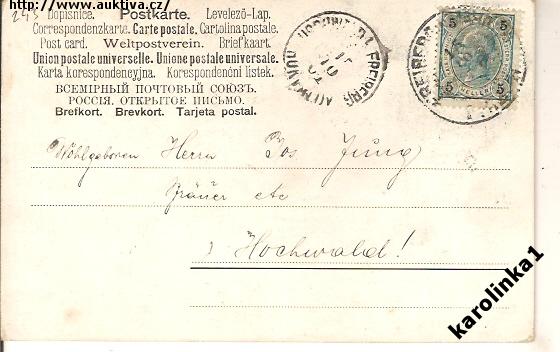 http://www.auktiva.cz/
245
Dopisnice. Postkarte. Levelező-Lap.
Correspondenzkarte. Carte postale. Cartolina postale.
Post card. Weltpostverein. Brief kaart.
Union postale universelle. Unione postale universale.
Karta korespondencyjna. Korespondenční lístek.
ВСЕМІРНЫЙ ПОЧТОВЫЙ СОЮЗЪ.
РОССІЯ. ОТКРЫТОЕ ПИСЬМО.
Brefkort. Brevkort. Tarjeta postal.
HOCHWALD FREIBERG
FREIBERG
5 5
5 5
HELLER
Wohlgeboren Herrn Jos Jung
Bräuer etc
Hochwald!
karolinka1